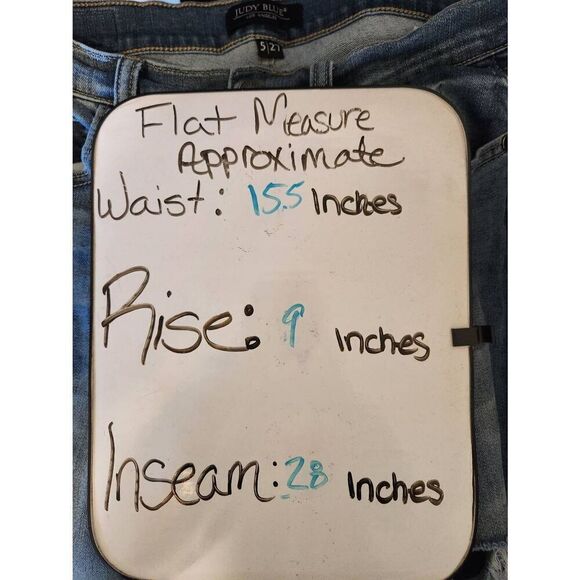 JUDY BLUE
LOS ANGELES
5|27
Flat Measure
Approximate
Waist: 15.5 Inches
Rise: 9 Inches
Inseam: 28 Inches